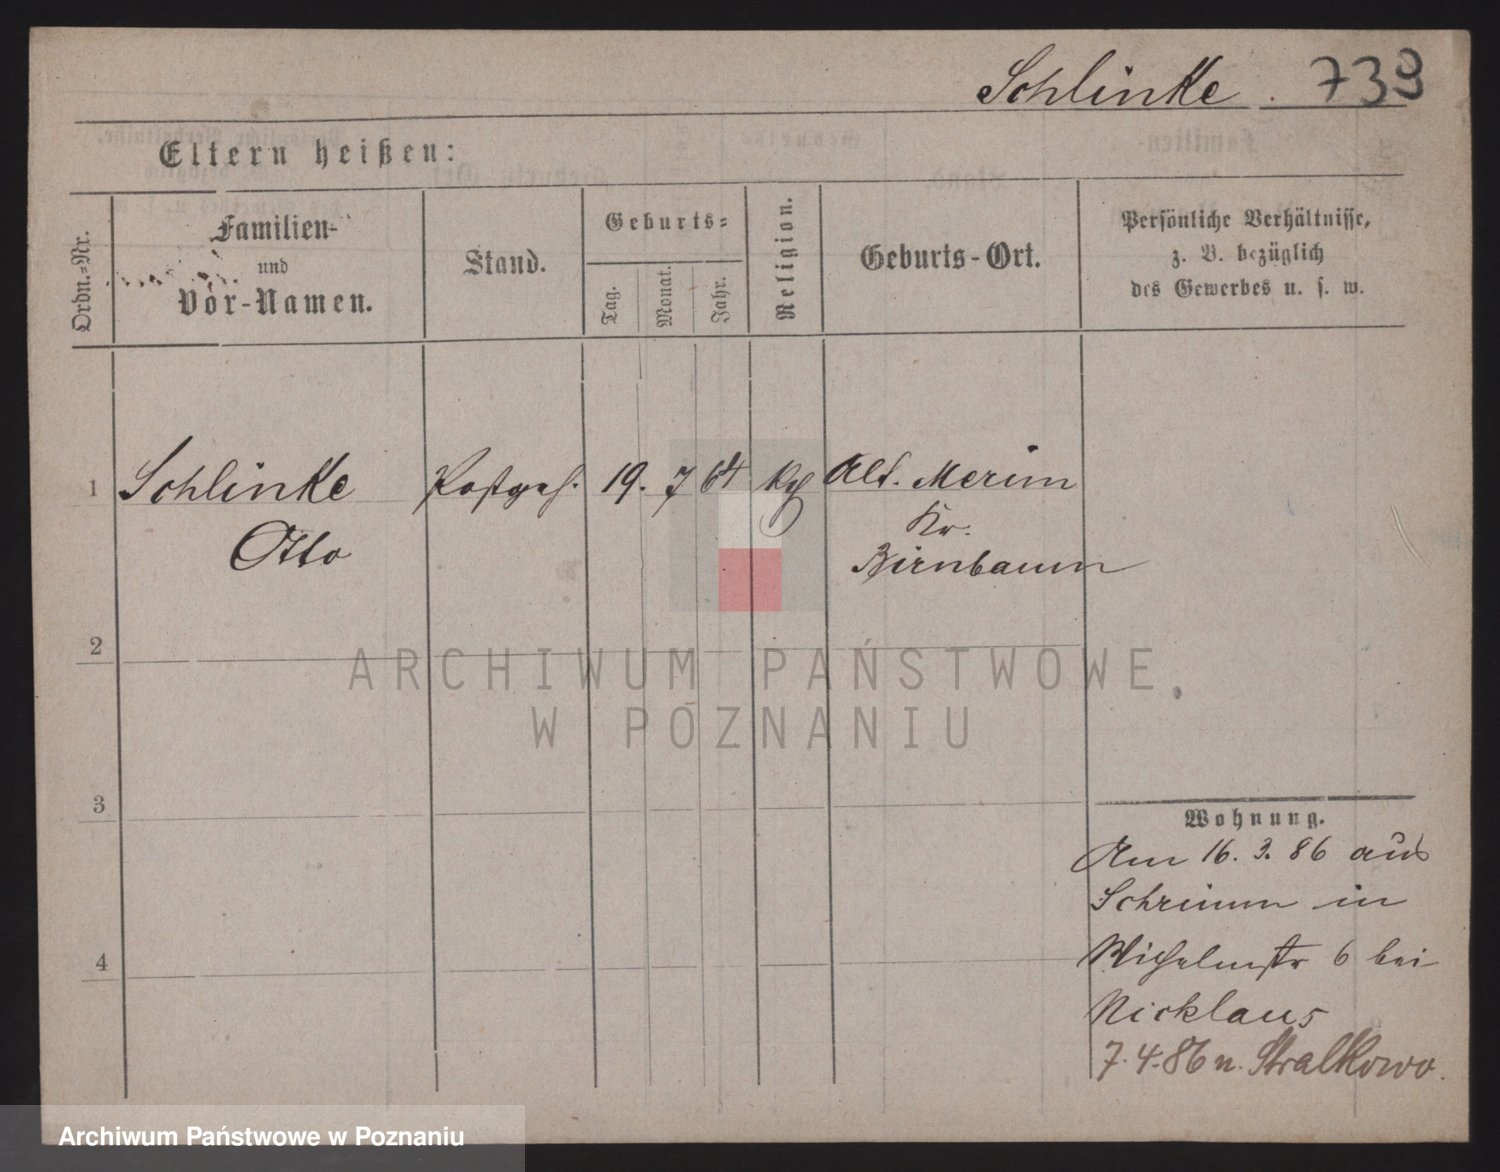 Schlinke. 739
Eltern heißen:
Ordn.=Nr.
Familien-
und
Vor-Namen.
Stand.
Geburts=
Tag.
Monat.
Jahr.
Religion.
Geburts-Ort.
Persönliche Verhältnisse,
z. B. bezüglich
des Gewerbes u. s. w.
1 Schlinke Postgeh. 19. 7 64 Alt. Merim
Otto
Kr.
Birnbaum
2
3
4
Wohnung.
Am 16. 3. 86 aus
Schrimm in
Wilhelmstr 6 bei
Nicklaus
7. 4. 86 n. Stralkowo.
ARCHIWUM PAŃSTWOWE
W POZNANIU
Archiwum Państwowe w Poznaniu